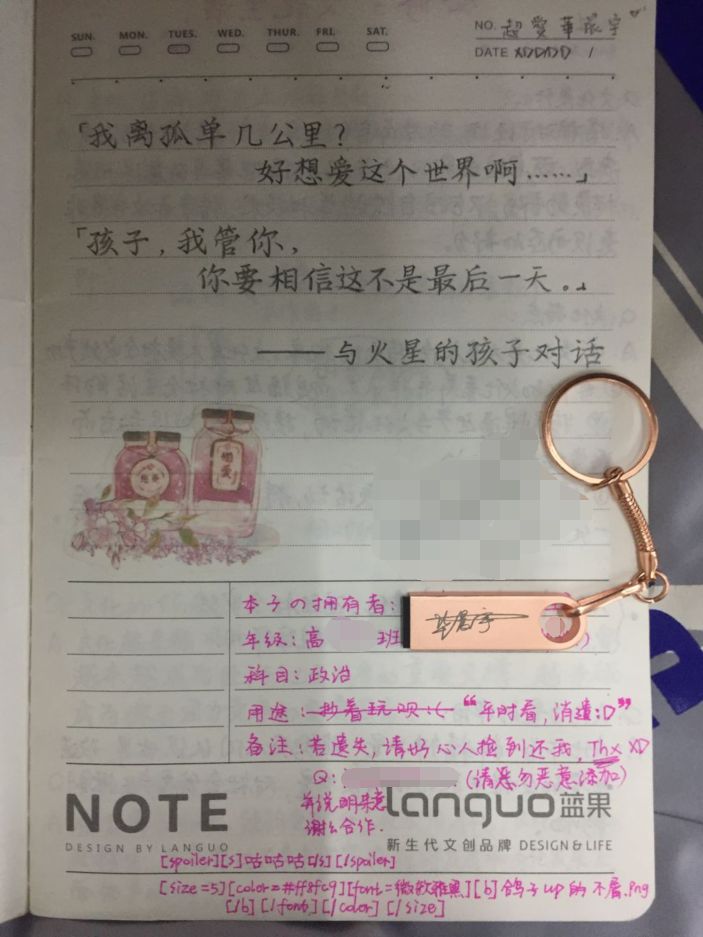 SUN. MON. TUES. WED. THUR. FRI. SAT.
NO. 超愛華晨宇
DATE XDDDD /
「我离孤单几公里?
好想爱这个世界啊……」
「孩子,我管你,
你要相信这不是最后一天。」
——与火星的孩子对话
相爱
本子の拥有者:
年级:高 班
科目:政治
用途:抄着玩呗:( “平时看,消遣:D”
备注:若遗失,请好心人捡到还我,Thx XD
Q: (请恶勿恶意添加)
并说明来意
谢谢合作.
NOTE
DESIGN BY LANGUO
Languo蓝果
新生代文创品牌 DESIGN&LIFE
[spoiler][s]咕咕咕[/s][/spoiler]
[size=5][color=#ff8fc9][font=微软雅黑][b]鸽子up的不屑.png
[/b][/font][/color][/size]